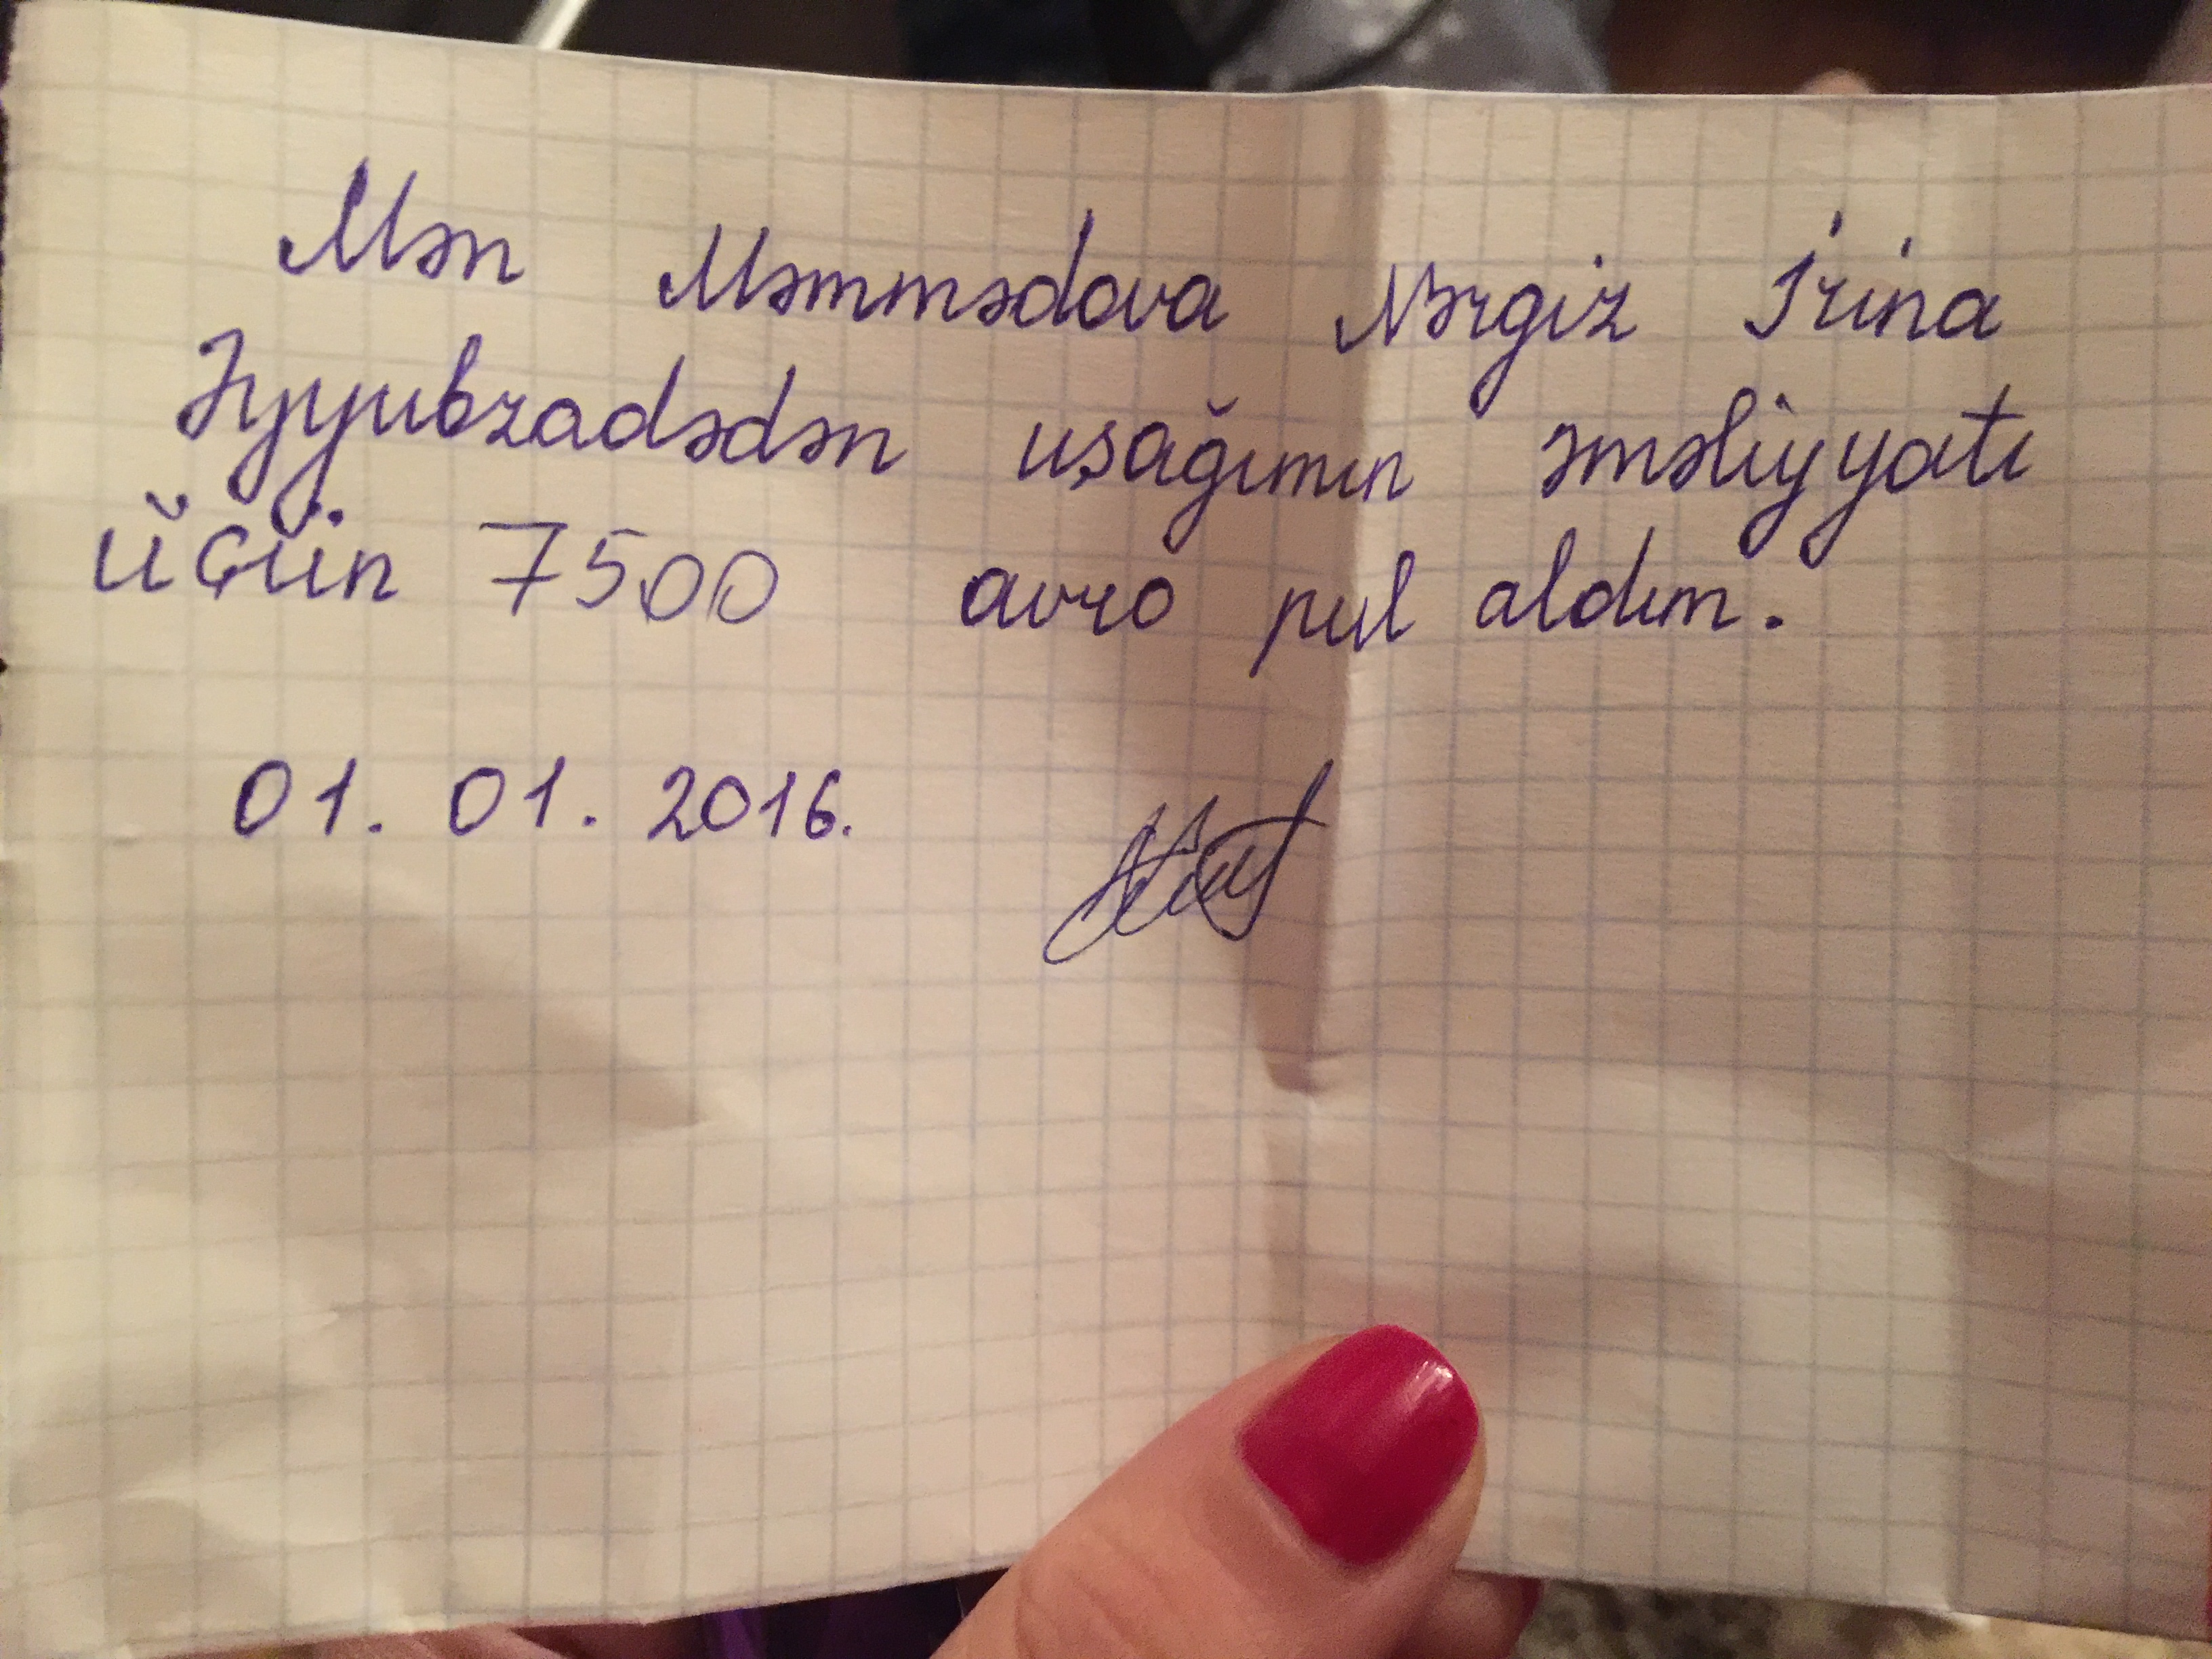 Mən Məmmədova Nərgiz İrina
Əyyubzadədən uşağımın əməliyyatı
üçün 7500 avro pul aldım.
01.01.2016.